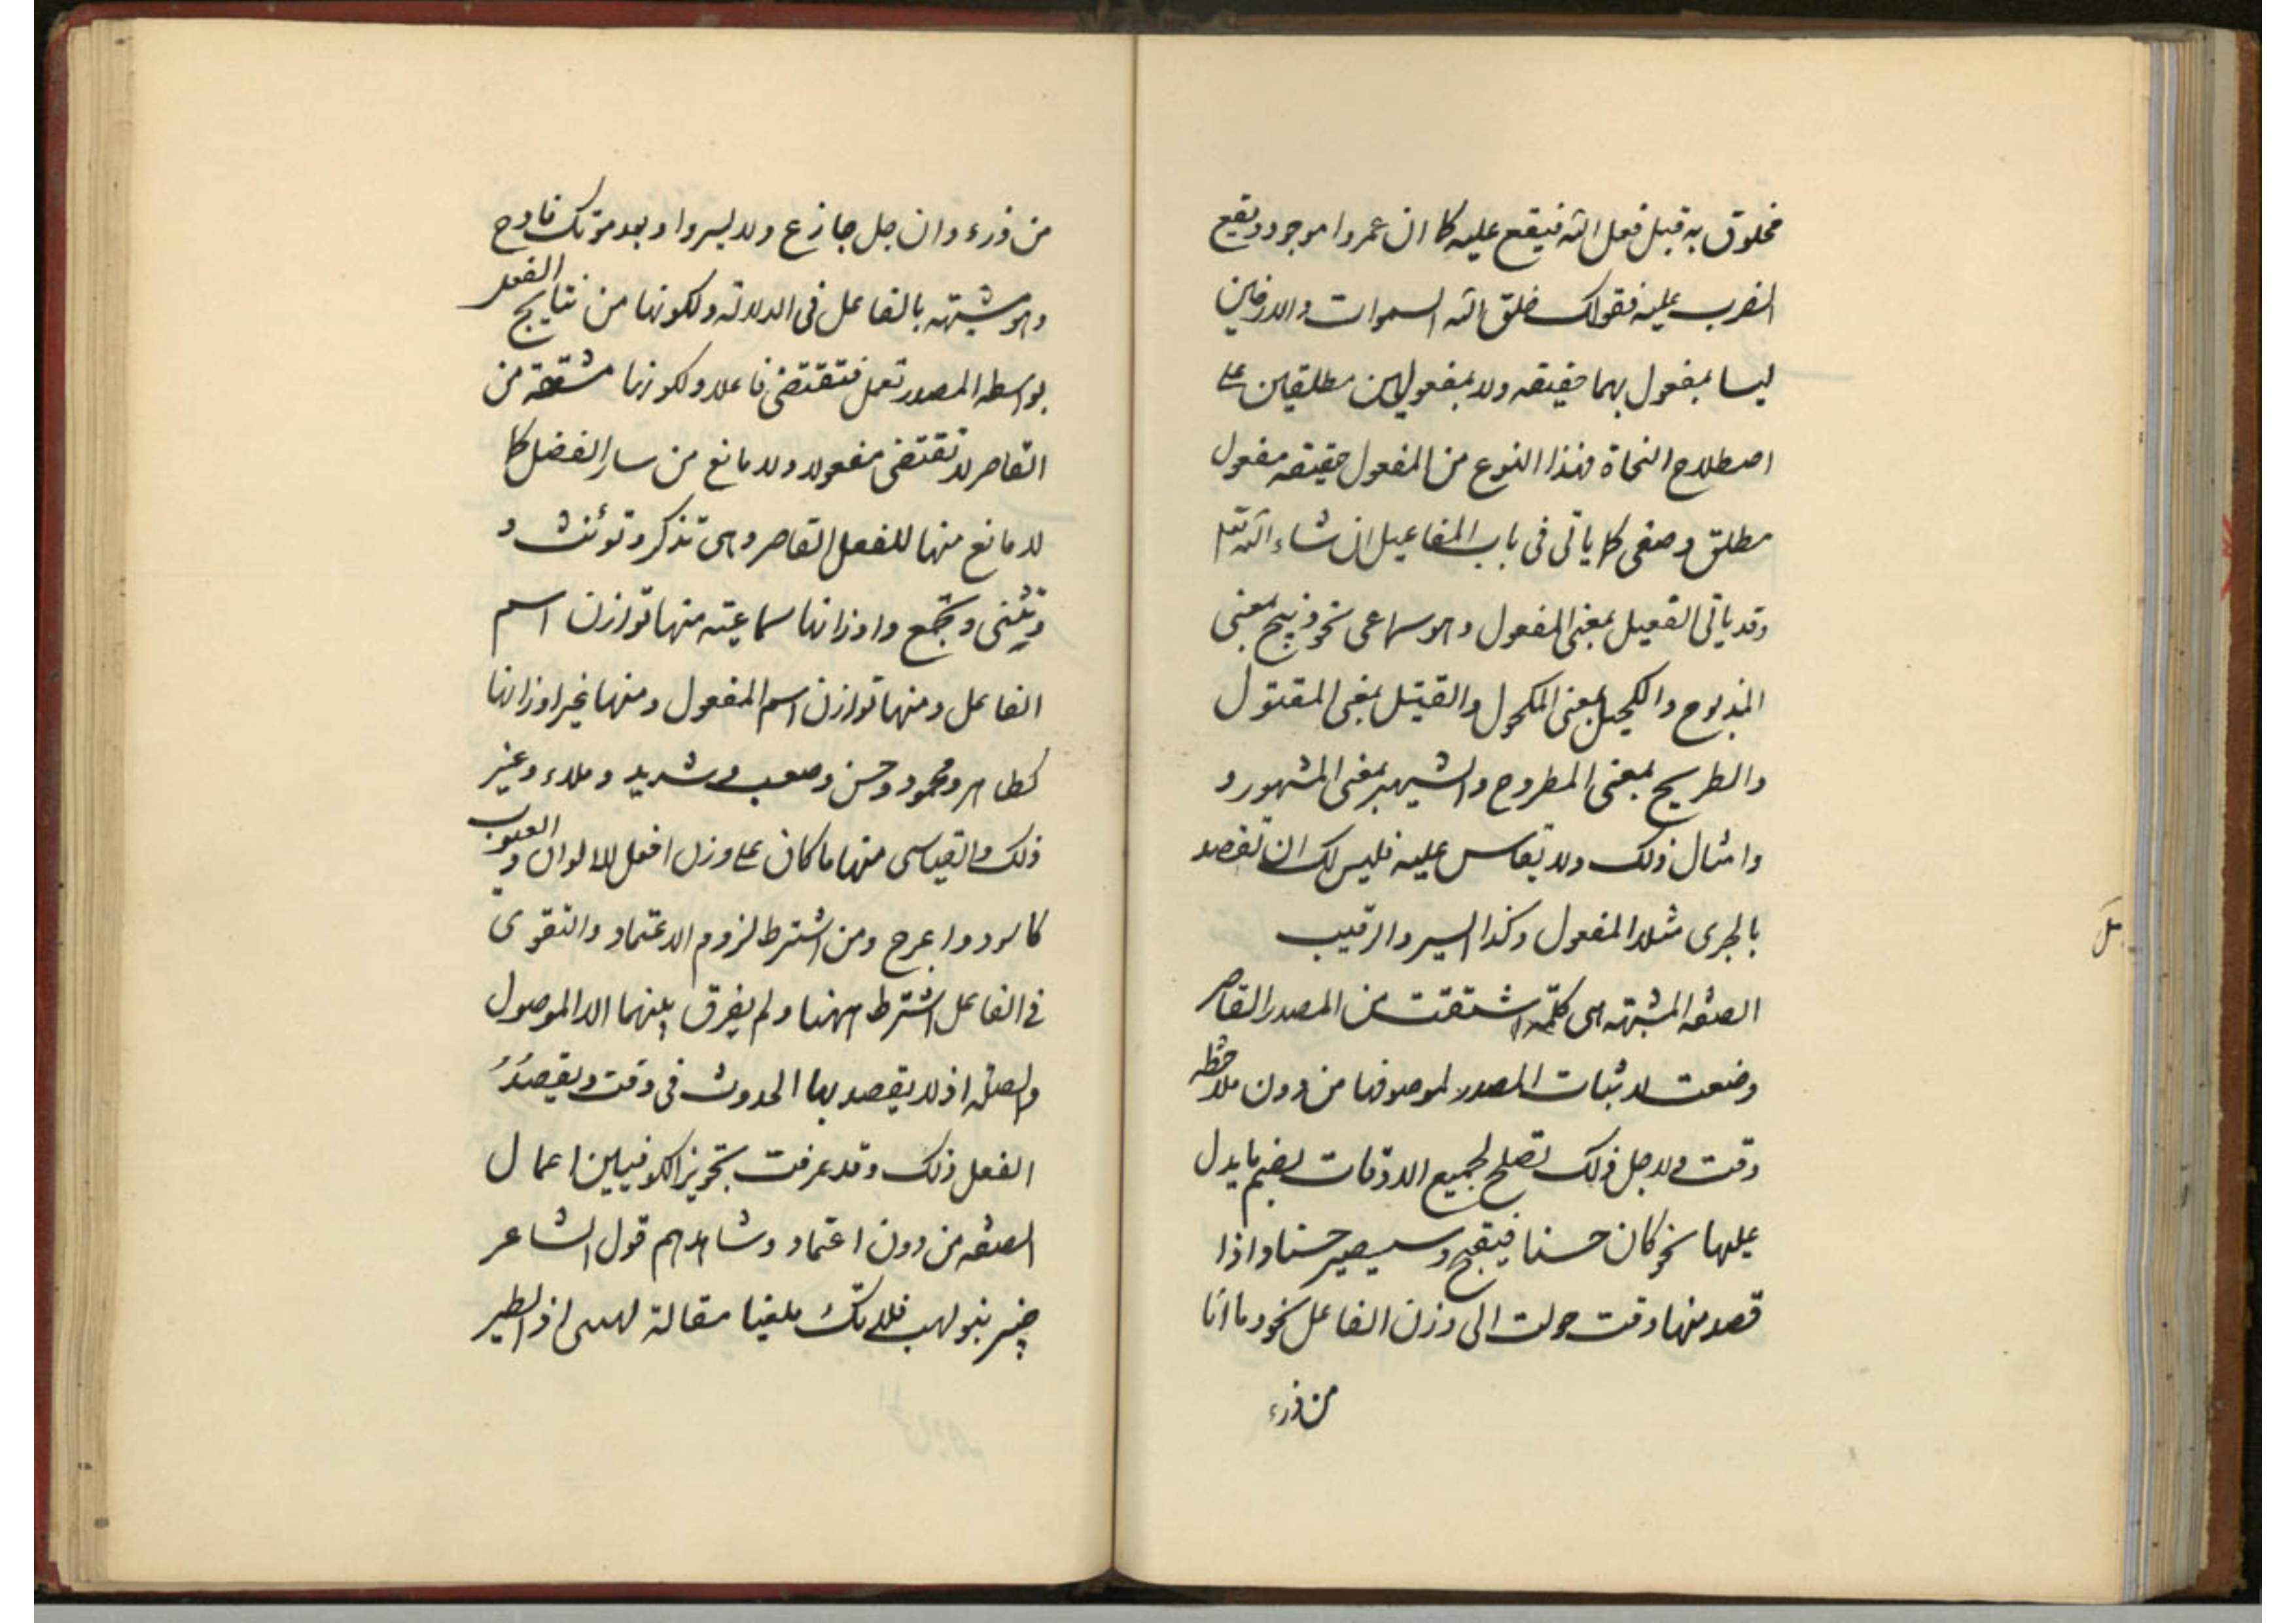 مخلوق به قبل فعل الله فيقع عليه كما ان عمروا موجود ويقع
الضرب عليه فقولك خلق الله السموات والارضين
ليسا بمفعول بهما حقيقه ولا بمفعولين مطلقين على
اصطلاح النحاة فهذا النوع من المفعول حقيقه مفعول
مطلق وصفى كما ياتى فى باب المفاعيل ان شاء الله تعالى
وقد ياتى الفعيل بمعنى المفعول وهو سماعى نحو ذبيح بمعنى
المذبوح والكحيل بمعنى المكحول والقتيل بمعنى المقتول
والطريح بمعنى المطروح والشهير بمعنى المشهور و
وامثال ذلك ولا يقاس عليه فليس لك ان تقصد
بالجرى مثلا المفعول وكذا السير والرقيب
الصفه المشبهه هى كلمة اشتقت من المصدر القاصر
وضعت لاثبات المصدر لموصوفها من دون ملاحظه
وقت ولاجل ذلك تصلح لجميع الاوقات بضم ما يدل
عليها نحو كان حسنا فيقبح وسيصير حسنا واذا
قصد منها وقت حولت الى وزن الفاعل نحو وما انا
من فرء
من فرء وان جل جازع ولا بسروا وبعد موتك فارح
وهو شبيهته بالفاعل فى الدلالة ولكونها من نتايج الفعل
بواسطه المصدر تعمل فتقتضى فاعلا ولكونها مشتقة من
القاصر لا تقتضى مفعولا ولا مانع من ساير الفضل كما
لا مانع منها للفعل القاصر وهى تذكر وتؤنث و
وتثنى وتجمع واوزانها سماعيته منها توازن اسم
الفاعل ومنها توازن اسم المفعول ومنها غير اوزانها
كطاهر ومحمود وحسن وصعب وشديد وملاء وغير
ذلك والقياسى منها ما كان على وزن افعل للالوان والعيوب
كاسود واعرج ومن اشترط لزوم الاعتماد والتقوى
فى الفاعل اشترط ههنا ولم يفرق بينهما الا الموصول
والصله اذ لا يقصد بها الحدوث فى وقت ويقصد
الفعل ذلك وقد عرفت تجويز الكوفيين اعمال
الصفه من دون اعتماد وشاهدهم قول الشاعر
خبير بنو لهب فلا تك ملغيا مقالة لهبى اذ الطير